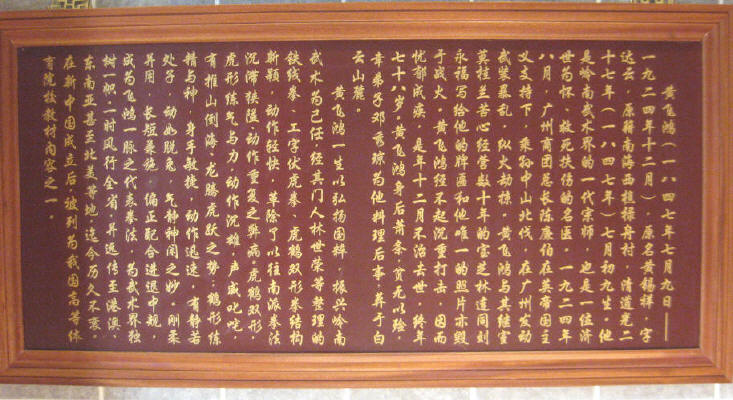 黄飞鸿(一八四七年七月九日——
一九二四年十二月),原名黄锡祥,字
达云,原籍南海西樵禄舟村,清道光二
十七年(一八四七年)七月初九生。他
是岭南武术界的一代宗师,也是一位济
世为怀、救死扶伤的名医。一九二四年
八月,广州商团总长陈廉伯在英帝国主
义支持下,乘孙中山北伐,在广州发动
武装暴乱,纵火劫掠,黄飞鸿与其继室
莫桂兰苦心经营数十年的宝芝林连同刘
永福写给他的牌匾和他唯一的照片亦毁
于战火。黄飞鸿经不起沉重打击,因而
忧郁成疾,是年十二月不治去世,终年
七十八岁。黄飞鸿身后萧条,贫无以殓,
幸弟子邓秀琼为他料理后事,葬于白
云山麓。
黄飞鸿一生以弘扬国粹,振兴岭南
武术为己任,经其门人林世荣等整理的
铁线拳、工字伏虎拳、虎鹤双形拳结构
新颖,动作轻快,革除了以往南派拳法
沉滞狭隘、动作重复之弊病,虎鹤双形,
虎形练气与力,动作沉雄,声威叱咤,
有推山倒海、龙腾虎跃之势;鹤形练
精与神,身手敏捷,动作迅速,有静若
处子、动如脱兔,气静神闲之妙。刚柔
并用,长短兼施,偏正配合进退中规,
成为飞鸿一脉之代表拳法,为武术界独
树一帜,一时风行全省,并远传至港澳、
东南亚甚至北美等地,迄今历久不衰。
在新中国成立后,被列为我国高等体
育院校教材内容之一。